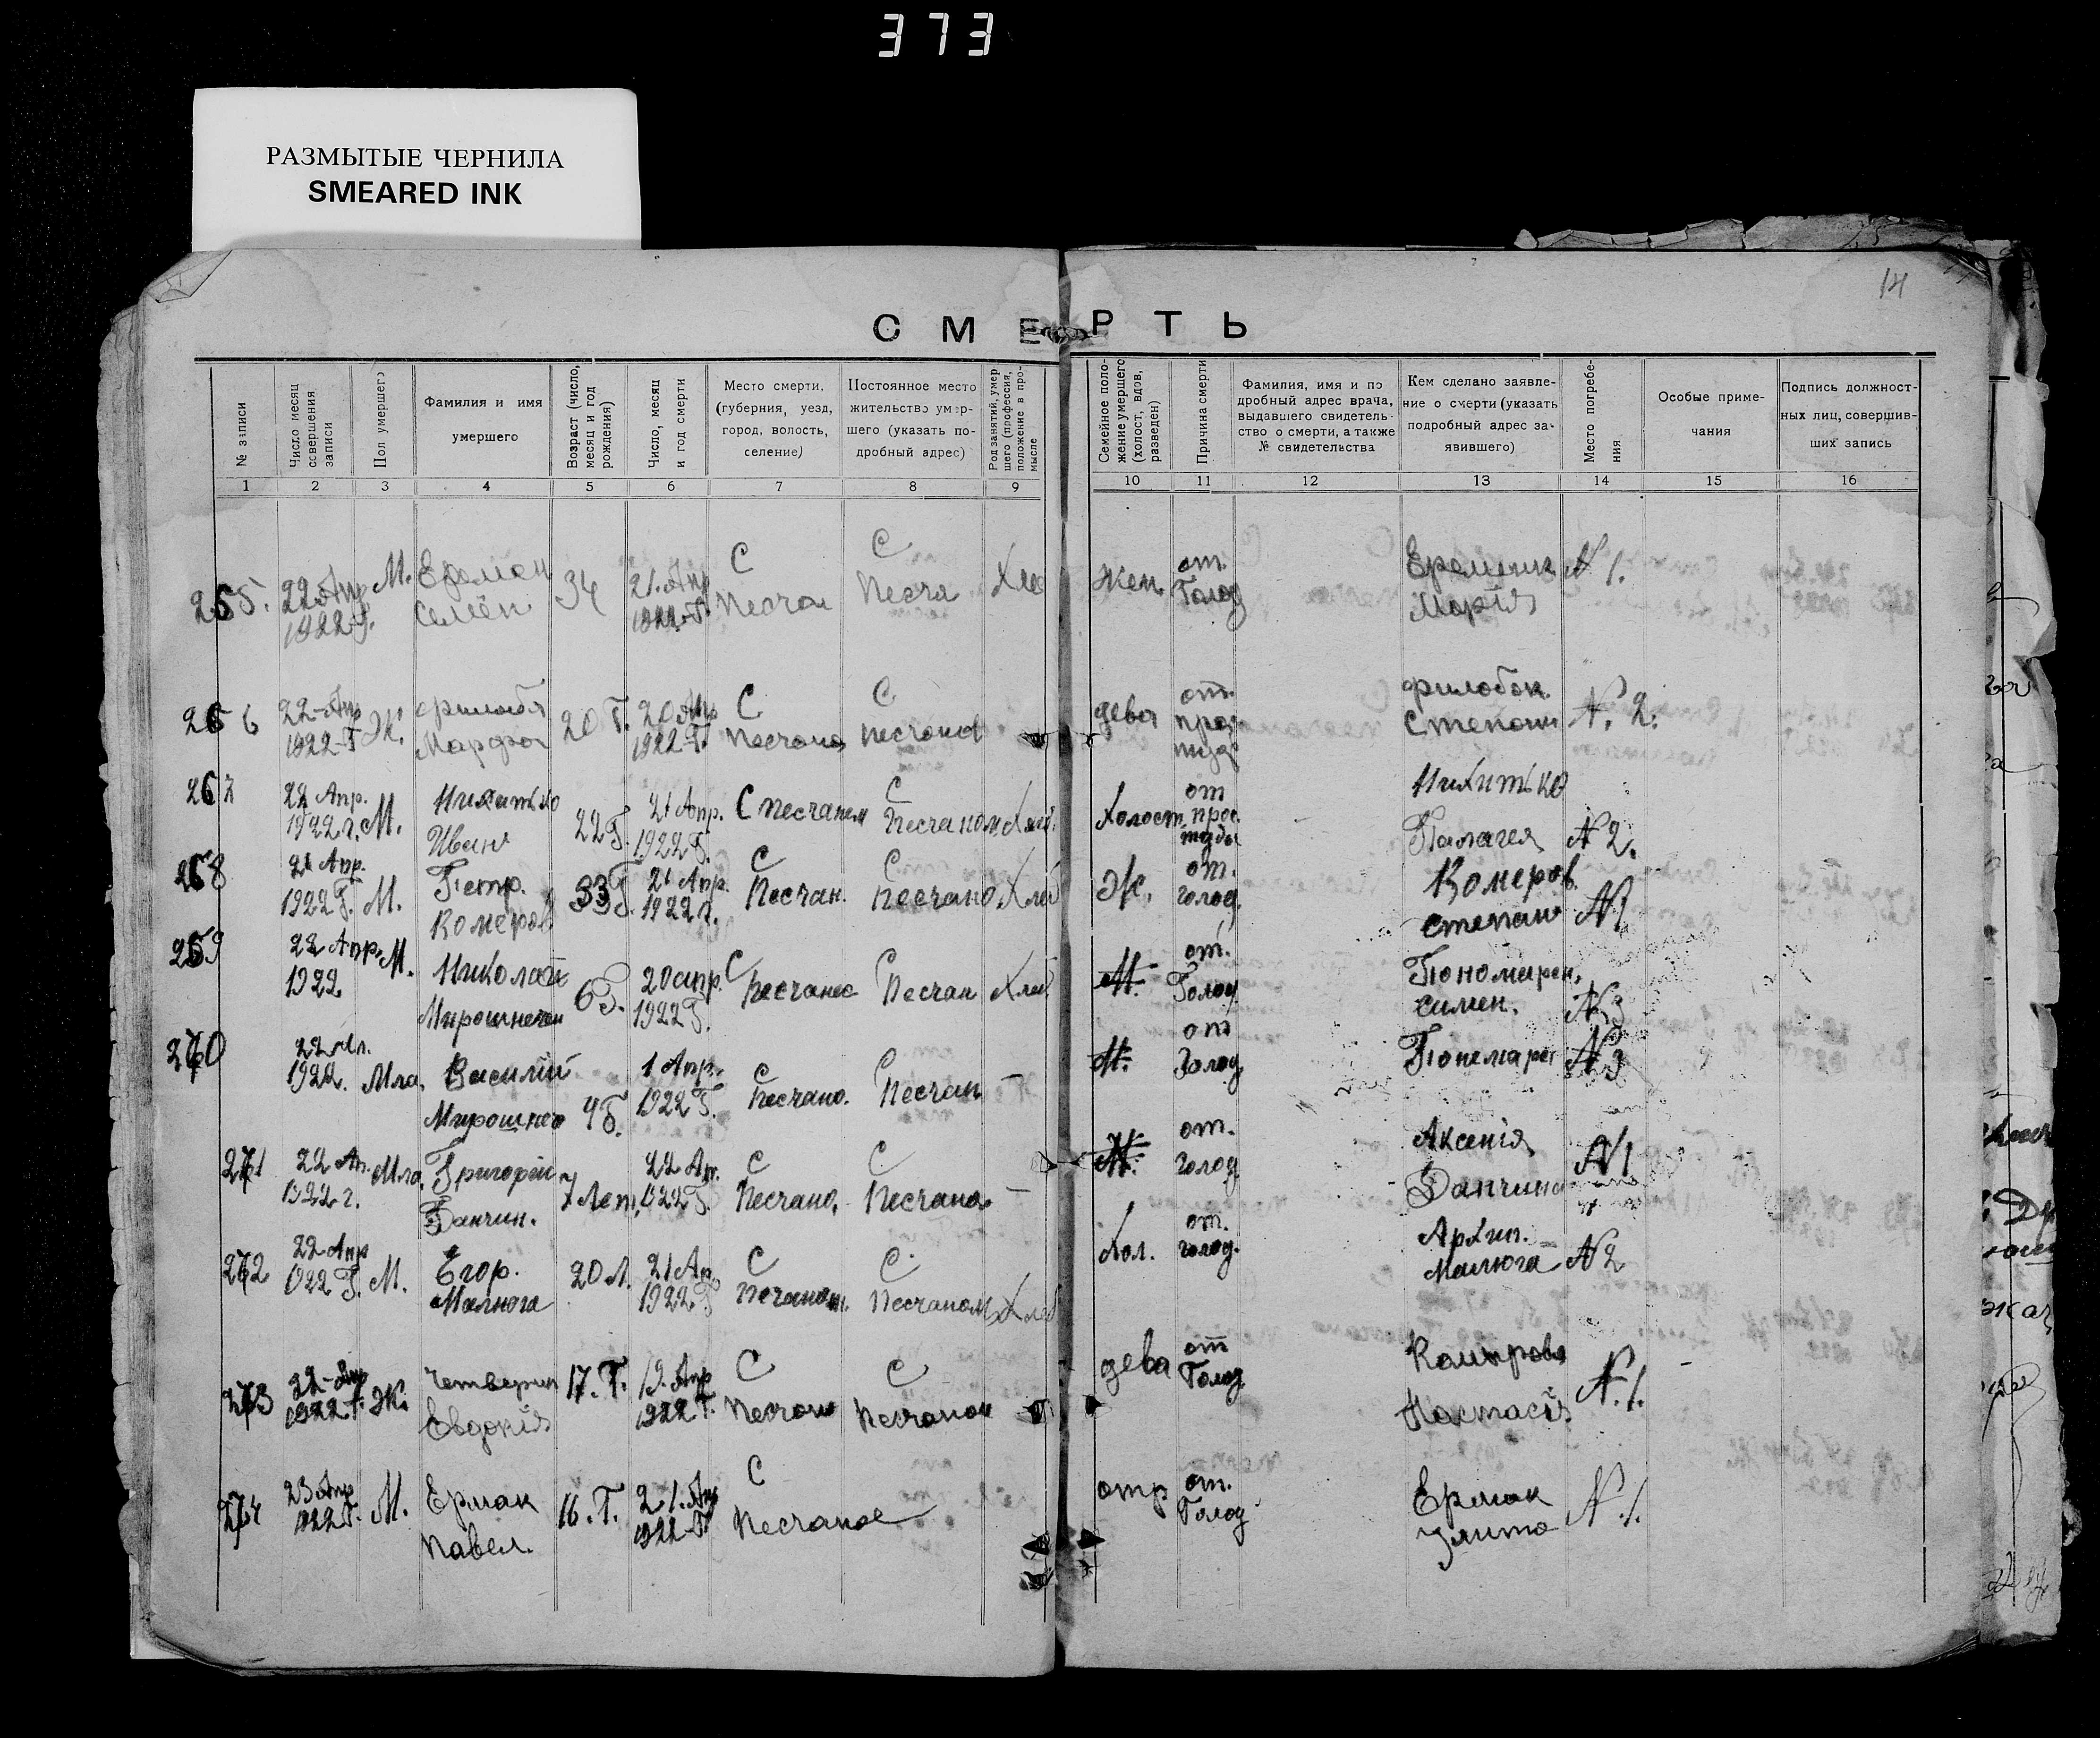 373
РАЗМЫТЫЕ ЧЕРНИЛА
SMEARED INK
14
СМЕРТЬ
№ записи
Число месяц совершения записи
Пол умершего
Фамилия и имя умершего
Возраст (число, месяц и год рождения)
Число, месяц и год смерти
Место смерти, (губерния, уезд, город, волость, селение)
Постоянное место жительство умершего (указать подробный адрес)
Род занятий, умершего (профессия, положение в промысле
Семейное положение умершего (холост, вдов, разведен)
Причина смерти
Фамилия, имя и подробный адрес врача, выдавшего свидетельство о смерти, а также № свидетельства
Кем сделано заявление о смерти (указать подробный адрес заявившего)
Место погребения
Особые примечания
Подпись должностных лиц, совершивших запись
1 2 3 4 5 6 7 8 9 10 11 12 13 14 15 16
22 Апр 1922-г. М. Еремен Семён 34 21. Апр 1922-Г. С Песчан С Песча Хле жен. от. Голод Еременк Марія N 1.
22-Апр 1922-Г Ж. Марфа 20 Г. 20 Апр 1922-Г. С Песчано С. Песчаной дева от. прос туде филобок Степан N. 2.
22 Апр. 1922 г. М. Никитько Иван 22 Г. 21 Апр. 1922 Г. С Песчаном С Песчаном Хлеб. Холост. от прос туды Никитько Палагея N 2.
21 Апр. 1922 Г. М. Петр. Комеров 33 Г. 21 Апр. 1922 г. С Песчан. С Песчано. Хлеб Ж. от. голод. Комеров Степан N 1
22 Апр. 1922 М. Николай Мирошнечен 6 Г. 20 апр. 1922 Г. С Песчанее С Песчан Хлеб М. от. Голод Пономарен. симен. N 3
270 22 Ап. 1922. Мла. Василий Мирошнеч 4 Г. 1 Апр. 1922 Г. С Песчано. С Песчан – М. от Голод Пономаре N 3
271 22 Ап. 1922 г. Мла. Григорий Ганчин. 7 Лет. 22 Ап. 1922 Г. С Песчано. С Песчано – М. от. голод Аксенія Ганчина N 1
272 22 Апр 1922 Г. М. Егор. Малюга 20 Л. 21 Ап. 1922 Г С Песчаном. С. Песчаном Хлеб Хол. от. голод. Архип. Малюга N 2
273 22-Апр 1922 г. Ж. Четверик Евдокія 17. Г. 19. Апр 1922 Г. С Песчано С Песчаном дева от Голод Настасія N. 1.
274 23 Апр 1922 Г. М. Ермак Павел. 16. Г. 21. Апр 1922-Г. С Песчаное отр от. Голод Ермак Улита N. 1.